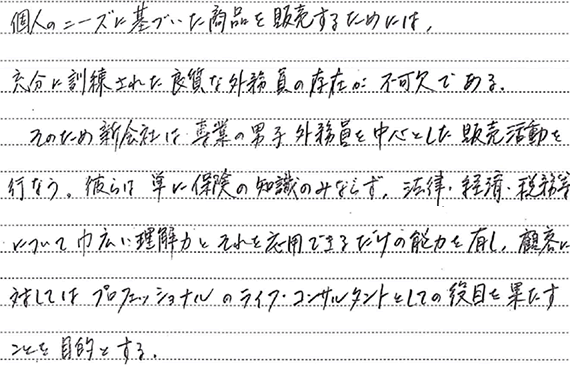 個人のニーズに基づいた商品を販売するためには,
充分に訓練された良質な外務員の存在が不可欠である.
そのため新会社は専業の男子外務員を中心とした販売活動を
行なう。彼らは単に保険の知識のみならず,法律・経済・税務等
について巾広い理解力とそれを応用できるだけの能力を有し,顧客に
対してはプロフェッショナルのライフ・コンサルタントとしての役目を果たす
ことを目的とする.